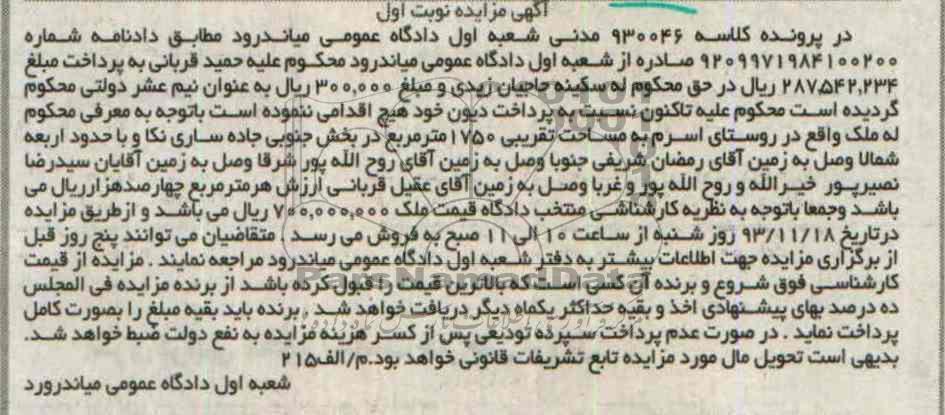 آگهی مزایده نوبت اول
در پرونده کلاسه ۹۳۰۰۴۶ مدنی شعبه اول دادگاه عمومی میاندرود مطابق دادنامه شماره
۹۲۰۹۹۷۱۹۸۴۱۰۰۲۰۰ صادره از شعبه اول دادگاه عمومی میاندرود محکوم علیه حمید قربانی به پرداخت مبلغ
۲۸۷,۵۴۲,۲۳۴ ریال در حق محکوم له سکینه حاجیان زیدی و مبلغ ۳۰۰,۰۰۰ ریال به عنوان نیم عشر دولتی محکوم
گردیده است محکوم علیه تاکنون نسبت به پرداخت دیون خود هیچ اقدامی ننموده است باتوجه به معرفی محکوم
له ملک واقع در روستای اسرم به مساحت تقریبی ۱۷۵۰مترمربع در بخش جنوبی جاده ساری نکا و با حدود اربعه
شمالا وصل به زمین آقای رمضان شریفی جنوبا وصل به زمین آقای روح الله پور شرقا وصل به زمین آقایان سیدرضا
نصیرپور خیرالله و روح الله پور و غربا وصل به زمین آقای عقیل قربانی ارزش هرمترمربع چهارصدهزارریال می
باشد وجمعا باتوجه به نظریه کارشناسی منتخب دادگاه قیمت ملک ۷۰۰,۰۰۰,۰۰۰ ریال می باشد و ازطریق مزایده
درتاریخ ۹۳/۱۱/۱۸ روز شنبه از ساعت ۱۰ الی ۱۱ صبح به فروش می رسد . متقاضیان می توانند پنج روز قبل
از برگزاری مزایده جهت اطلاعات بیشتر به دفتر شعبه اول دادگاه عمومی میاندرود مراجعه نمایند . مزایده از قیمت
کارشناسی فوق شروع و برنده آن کسی است که بالاترین قیمت را قبول کرده باشد از برنده مزایده فی المجلس
ده درصد بهای پیشنهادی اخذ و بقیه حداکثر یکماه دیگر دریافت خواهد شد . برنده باید بقیه مبلغ را بصورت کامل
پرداخت نماید . در صورت عدم پرداخت سپرده تودیعی پس از کسر هزینه مزایده به نفع دولت ضبط خواهد شد.
بدیهی است تحویل مال مورد مزایده تابع تشریفات قانونی خواهد بود.م/الف۲۱۵
شعبه اول دادگاه عمومی میاندرورد
ParsNamadData